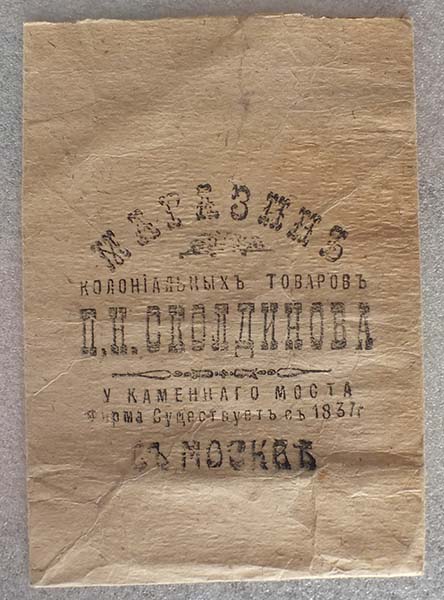 МАГАЗИНЪ
КОЛОНІАЛЬНЫХЪ ТОВАРОВЪ
П.Н.СКОЛДИНОВА
У КАМЕННАГО МОСТА
Фирма Существуетъ съ 1837г
ВЪ МОСКВѢ